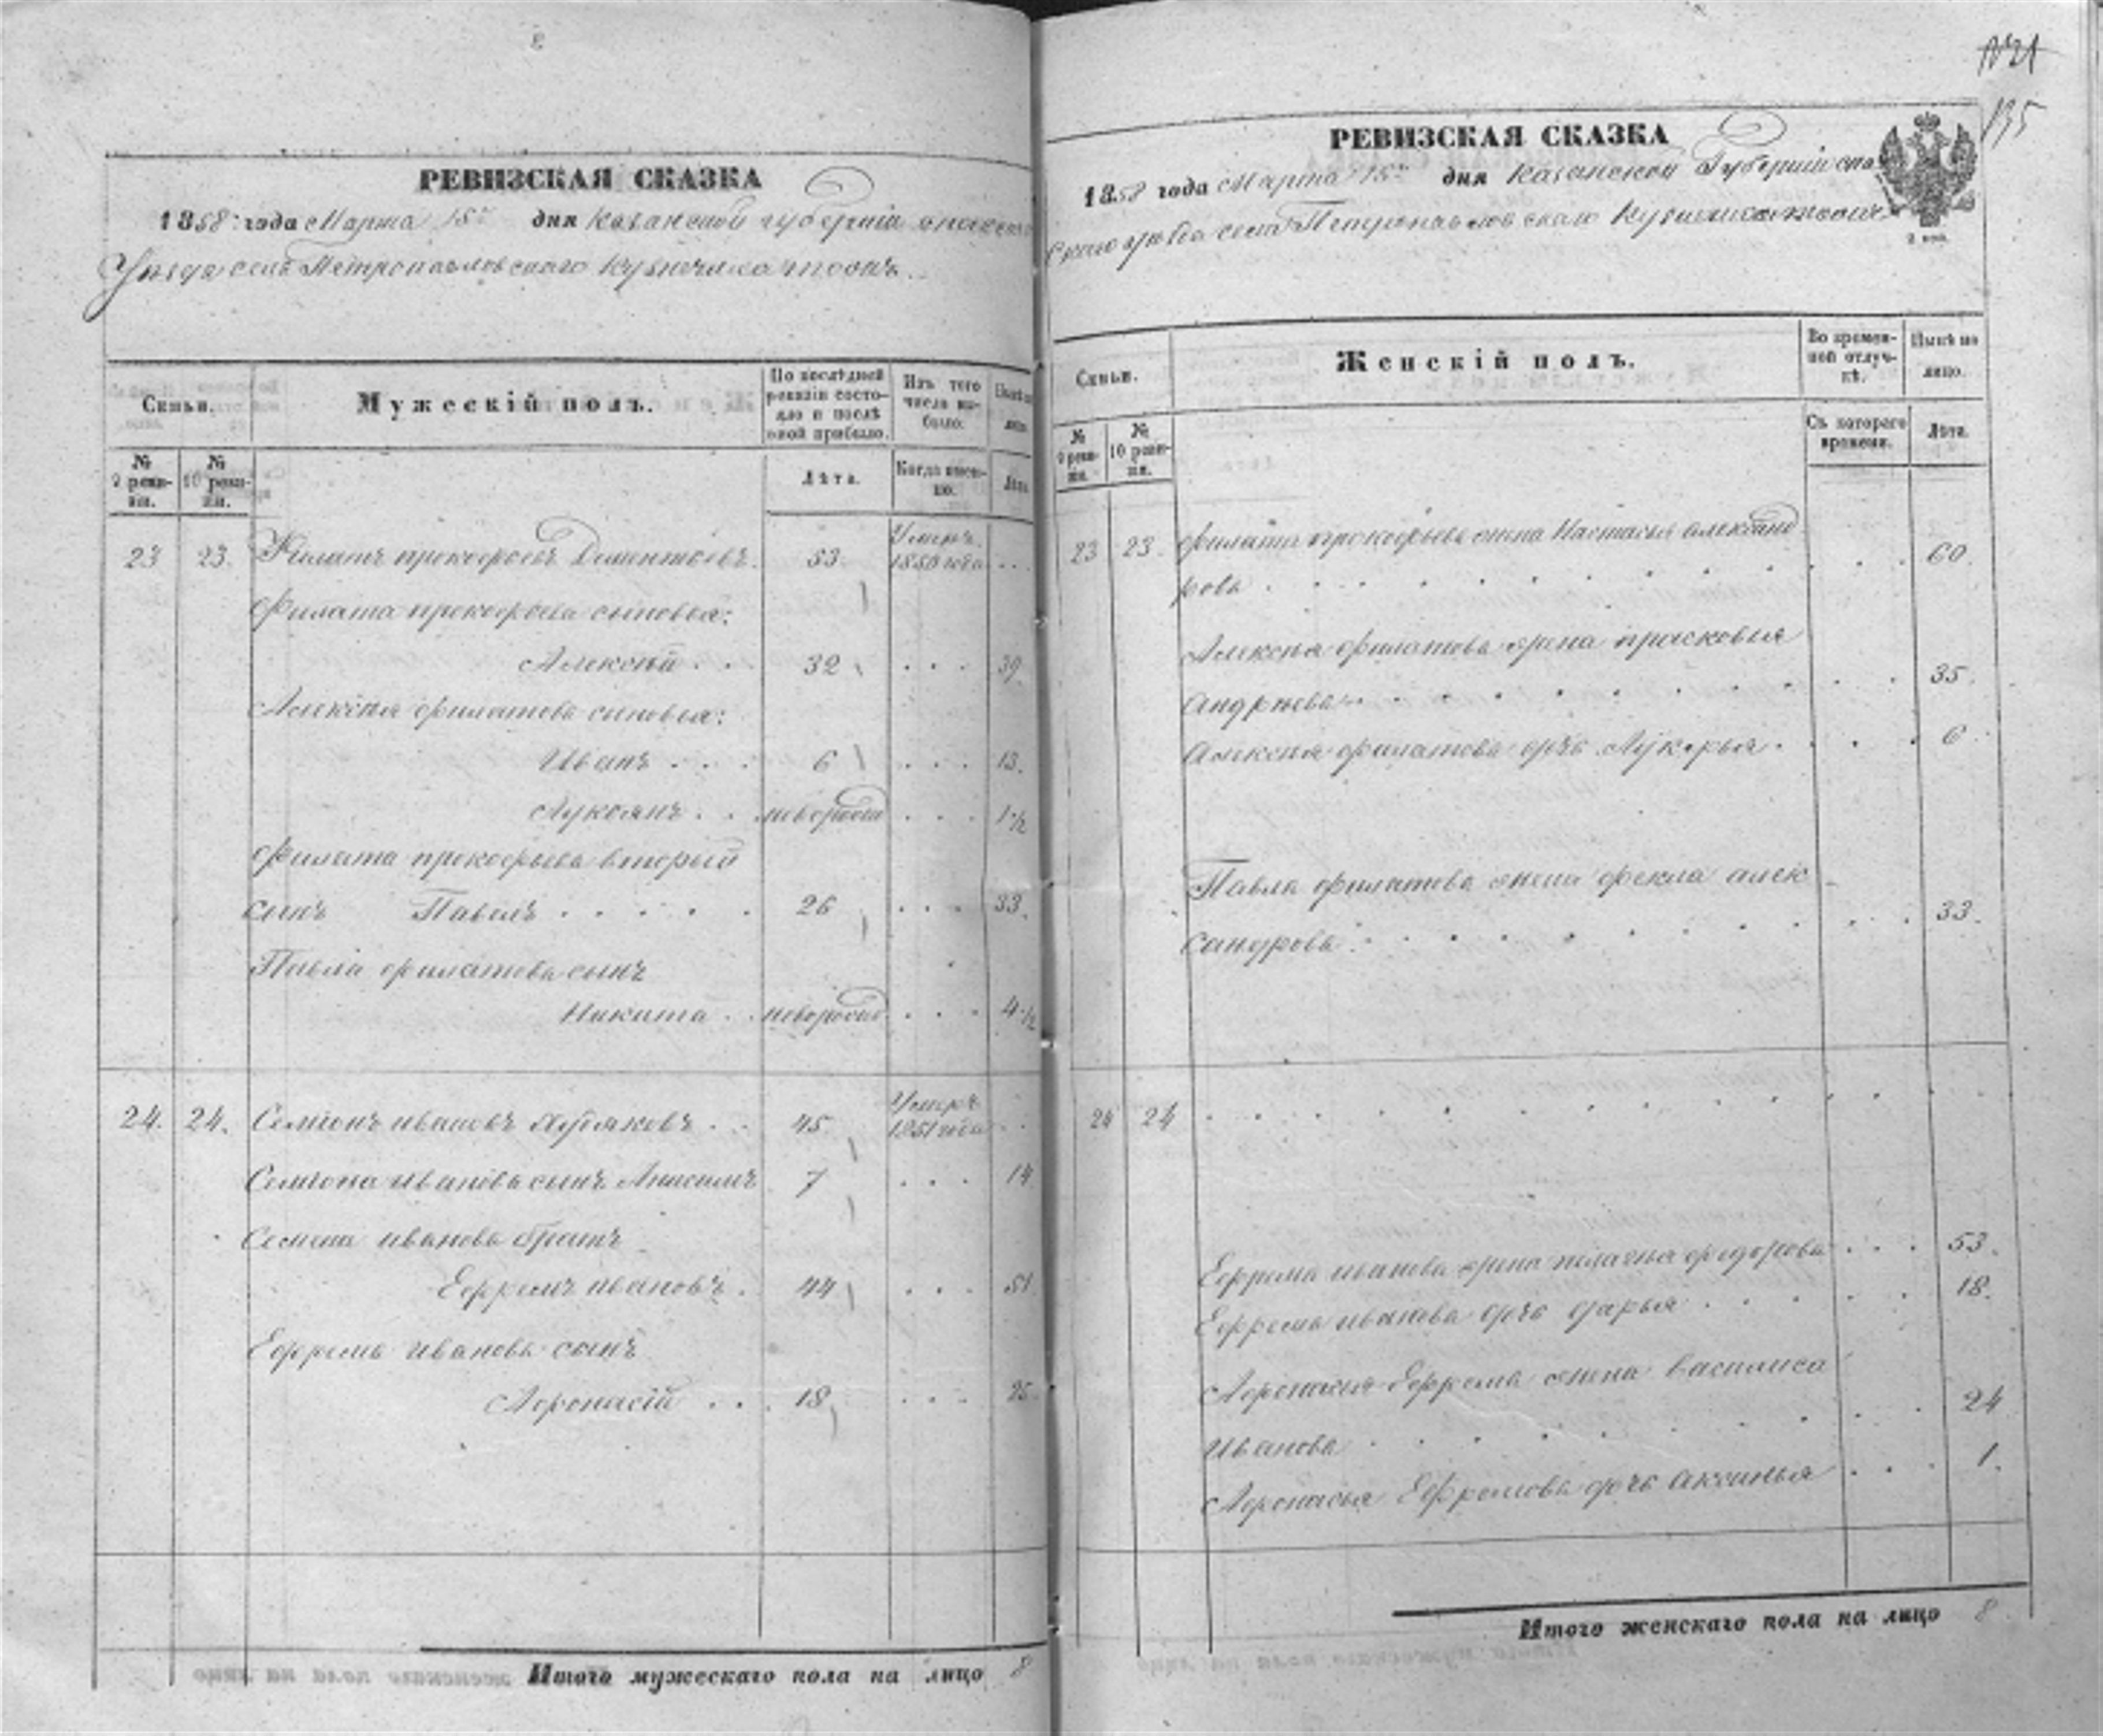 РЕВИЗСКАЯ СКАЗКА
1858 года Марта 15го дня Казанской губерніи Спасскаго
Уезда села Петропавловскаго Кузнечиха тоожъ
Семьи.
Мужескій полъ.
По послѣдней ревизіи состояло и послѣ оной прибыло.
Изъ того числа выбыло.
Нынѣ на лицо.
№ 9 ревизіи.
№ 10 ревизіи.
Лѣта.
Когда именно.
Лѣта.
23 23. Филатъ прокофьевъ Дементьевъ. 53. Умеръ 1850 года ...
Филата прокофьева сыновья:
Алексей . . 32 . . . 39.
Алексея филатова сыновья:
Иванъ . . . 6 . . . 13.
Лукоянъ . . . новорожден . . . 1 1/2
Филата прокофьева вторый
сынъ Павелъ . . . . . 26 . . . 33.
Павла филатова сынъ
Никита . . новорожден . . . 4 1/2
24. 24. Семионъ ивановъ Худяковъ . . 45. Умеръ 1851 года . .
Семиона иванова сынъ Анисимъ 7 . . . 14
Семена иванова братъ
Ефремъ ивановъ . 44 . . . 51.
Ефрема иванова сынъ
Афонасій . . . 18 . . . 25.
Итого мужескаго пола на лицо 8
№21
135
РЕВИЗСКАЯ СКАЗКА
1858 года Марта 15го дня Казанской Губерніи Спас
скаго уезда села Петропавловскаго Кузнечиха тоожъ
2 коп.
Семьи.
Женскій полъ.
Во временной отлучкѣ.
Нынѣ на лицо.
№ 9 ревизіи.
№ 10 ревизіи.
Съ котораго времени.
Лѣта.
23 23. Филата прокофьева жена Настасья александ
рова . . . . . . . . . . 60.
Алексея филатова жена прасковья
андреева . . . . . . . . . 35.
Алексея филатова дочь Лукерья . . . . 6
Павла филатова жена фекла алек
сандрова . . . . . . . . . 33.
24 24 . . . . . . . . . .
Ефрема иванова жена пелагея федорова . . . 53.
Ефрема иванова дочь дарья . . . . . 18.
Афонасья Ефрема жена василиса
иванова . . . . . . . . 24
Афонасья Ефремова дочь аксинья . . . 1.
Итого женскаго пола на лицо 8.